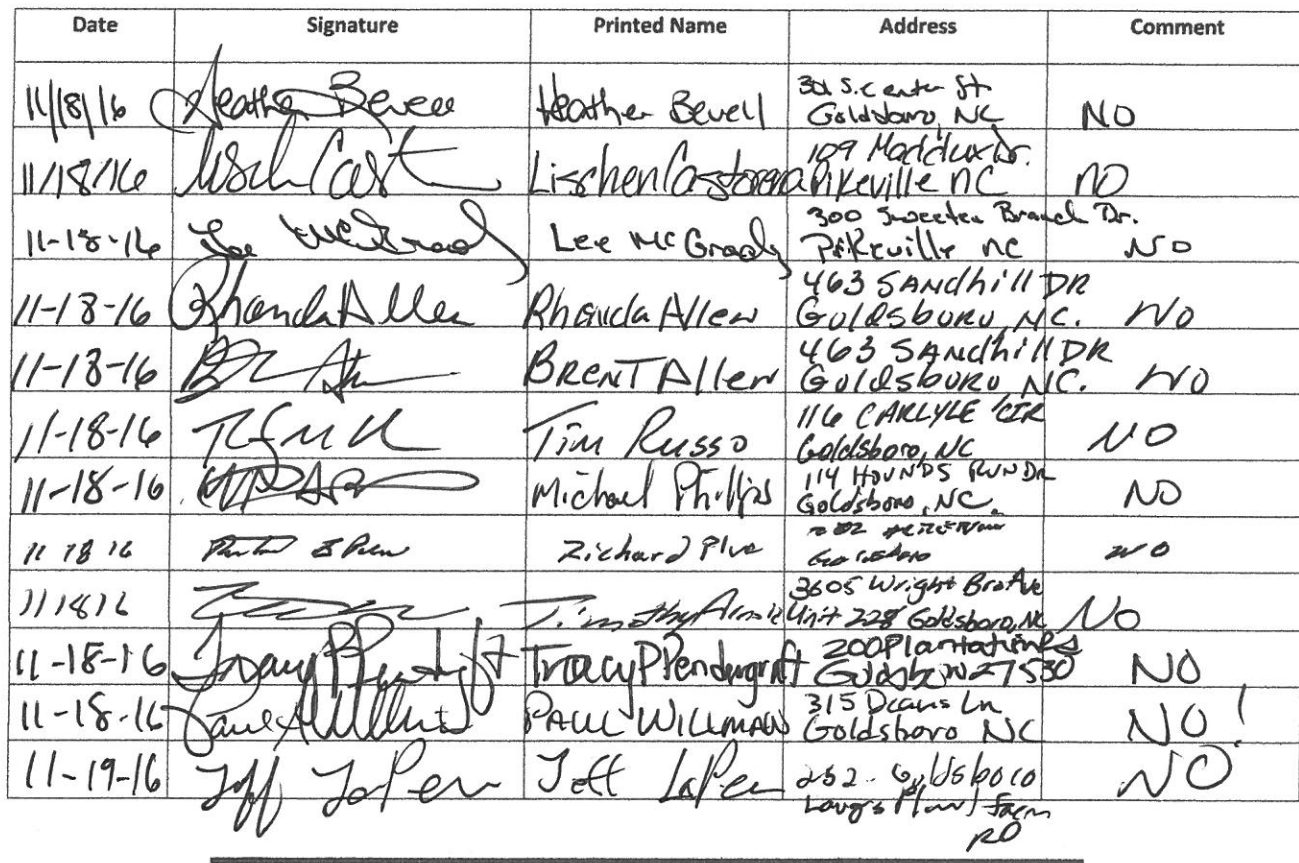 Date Signature Printed Name Address Comment
11/18/16 Heather Bevell Heather Bevell 301 S. Center St
Goldsboro, NC NO
11/18/16 Lischen Cast Lischen Castorena 109 Maddux Dr.
Pikeville nc NO
11-18-16 Lee McGrady Lee McGrady 300 Sweeten Branch Dr.
Pikeville nc NO
11-18-16 Rhonda Allen Rhonda Allen 463 SANdhill DR
Goldsboro, NC. NO
11-18-16 BRENT Allen 463 SANdhill DR
Goldsboro NC. NO
11-18-16 Tim Russo 116 CARLYLE CIR
Goldsboro, NC NO
11-18-16 Michael Phillips 114 HOUNDS RUN DR
Goldsboro, NC. NO
11 18 16 Goldsboro NO
11 18 16 Timothy 3605 Wright Bro Ave
Unit 228 Goldsboro, NC NO
11-18-16 Tracy P Pendergraft Tracy P Pendergraft 200 Plantation
27530 NO
11-18-16 PAUL WILLMAN 315 Deans Ln
Goldsboro NC NO!
11-19-16 Jeff LaPen Jeff LaPen 252 Goldsboro
Farm
RD NO